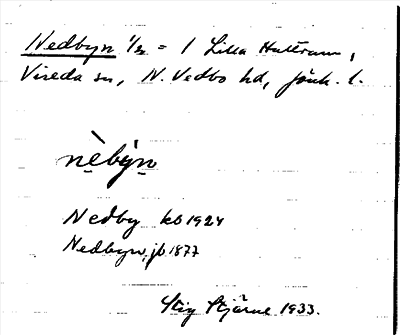 Nedbyn 1/2 = 1 Lilla Hultran,
Vireda sn, N. Vedbo hd, Jönk. l.
nèbýn
Nedby kb 1924
Nedbyn, jb 1877
Stig Stjärne 1933.